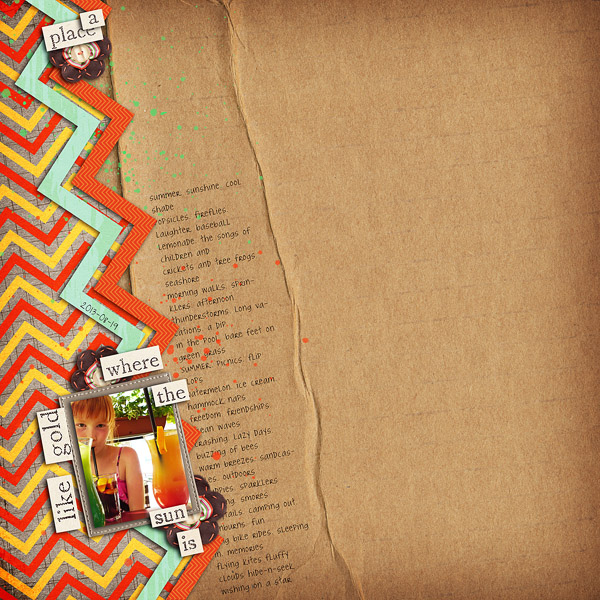 a
place
summer sunshine cool
shade
popsicles fireflies
laughter baseball
lemonade the songs of
children and
crickets and tree frogs
seashore
morning walks. sprin-
klers. afternoon
thunderstorms. long va-
cations. a dip
in the pool. bare feet on
green grass
summer. picnics. flip
flops
watermelon. ice cream.
hammock naps
freedom. friendships.
ocean waves
crashing. lazy days.
buzzing of bees
warm breezes. sandcas-
outdoors
sparklers
smores
camping out.
fun
bike rides. sleeping
in. memories
flying kites fluffy
clouds hide-n-seek
wishing on a star
2013-08-19
where
the
gold
like
sun
is